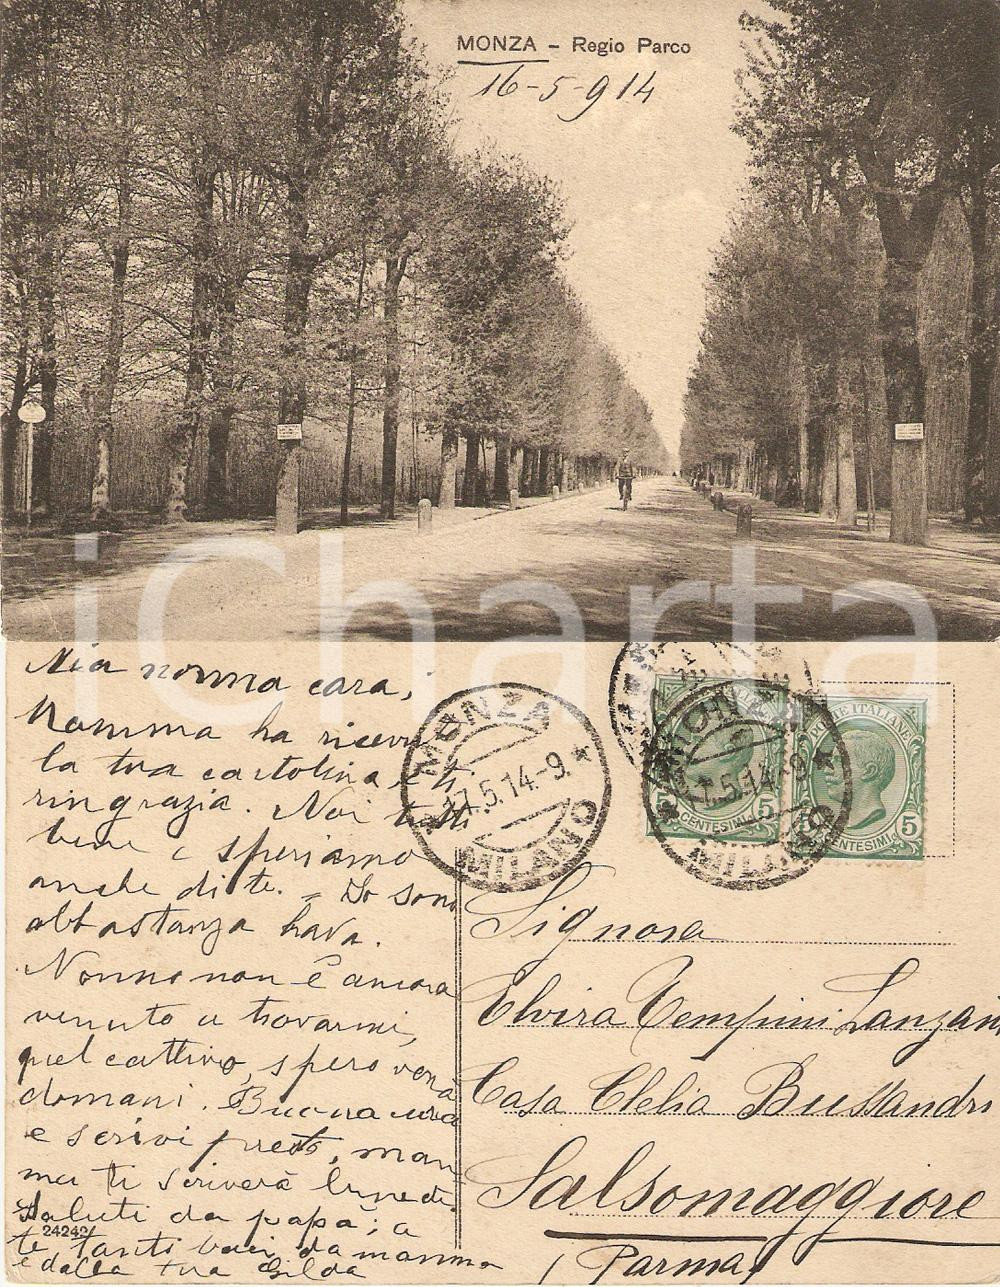 MONZA - Regio Parco
16-5-914
iCharta
Mia nonna cara,
Mamma ha ricevu
la tua cartolina e ti
ringrazia. Noi tutti
bene e speriamo
anche di te. = Io sono
abbastanza brava.
Nonno non è ancora
venuto a trovarmi,
quel cattivo, spero verrà
domani. Buona cura
e scrivi presto, mam
ma ti scriverà lunedì
Saluti da papà; a
24242
te tanti baci da mamma
e dalla tua Gilda
MONZA
17.5.14.-9
MILANO
17.5.14.-9
MILANO
POSTE ITALIANE
5 CENTESIMI 5
CENTESIMI 5
Signora
Elvira Tempini Lanzani
Casa Clelia Bussandri
Salsomaggiore
(Parma)